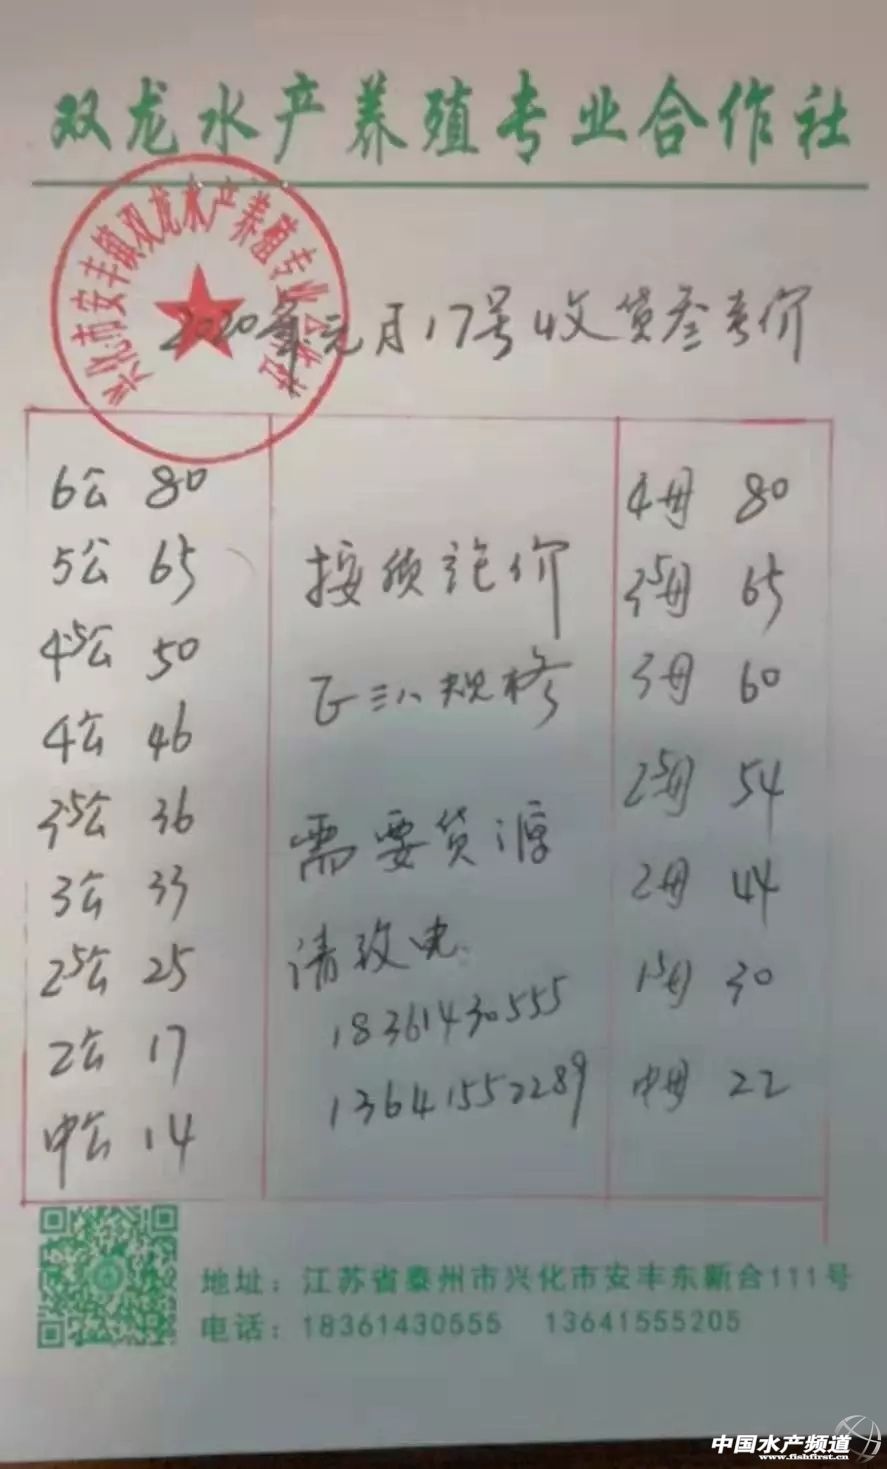 双龙水产养殖专业合作社
兴化市安丰镇双龙水产养殖专业合作社
2020年元月17号收货叁考价
6公 80
5公 65
4.5公 50
4公 46
3.5公 36
3公 33
2.5公 25
2公 17
中公 14
接预订价
三八规格
需要货源
请致电
18361430555
13641552289
4母 80
3.5母 65
3母 60
2.5母 54
2母 44
1.5母 30
中母 22
地址：江苏省泰州市兴化市安丰东新合111号
电话：18361430555 13641555205
中国水产频道
www.fishfirst.cn